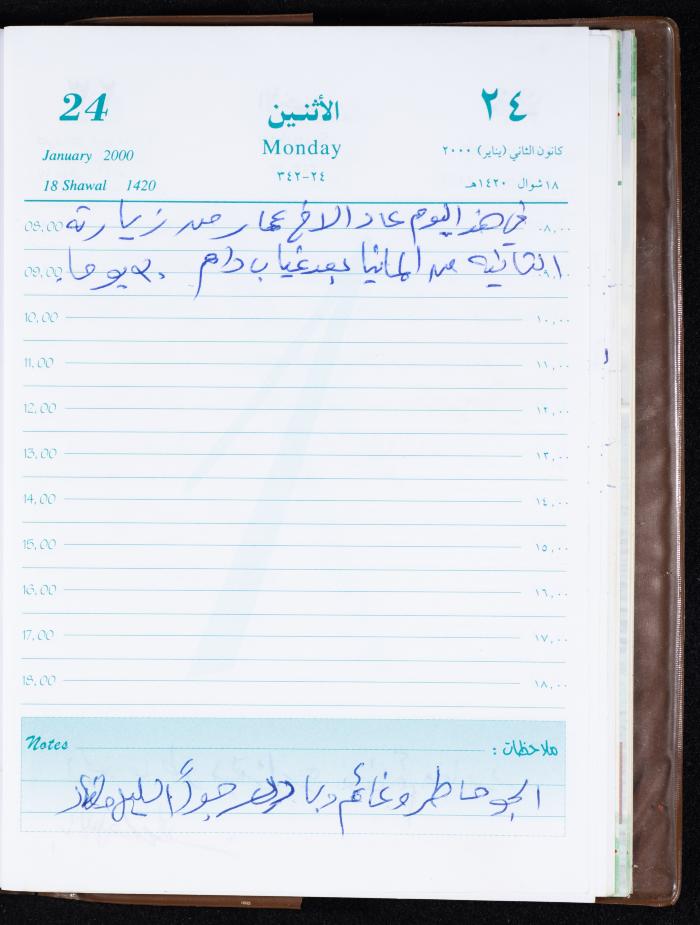 24 الأثنين ٢٤
January 2000 Monday كانون الثاني (يناير) ٢٠٠٠
18 Shawal 1420 ٣٤٢-٢٤ ١٨ شوال ١٤٢٠هـ
08,00 في هذا اليوم عاد الاخ عمار من زيارته ٠٨,٠٠
09,00 الثانيه من المانيا بعد غياب دام ٣٠ يوما. ٠٩,٠٠
10,00 ١٠,٠٠
11,00 ١١,٠٠
12,00 ١٢,٠٠
13,00 ١٣,٠٠
14,00 ١٤,٠٠
15,00 ١٥,٠٠
16,00 ١٦,٠٠
17,00 ١٧,٠٠
18,00 ١٨,٠٠
Notes ملاحظات :
الجو ماطر وغائم وبارد الليل